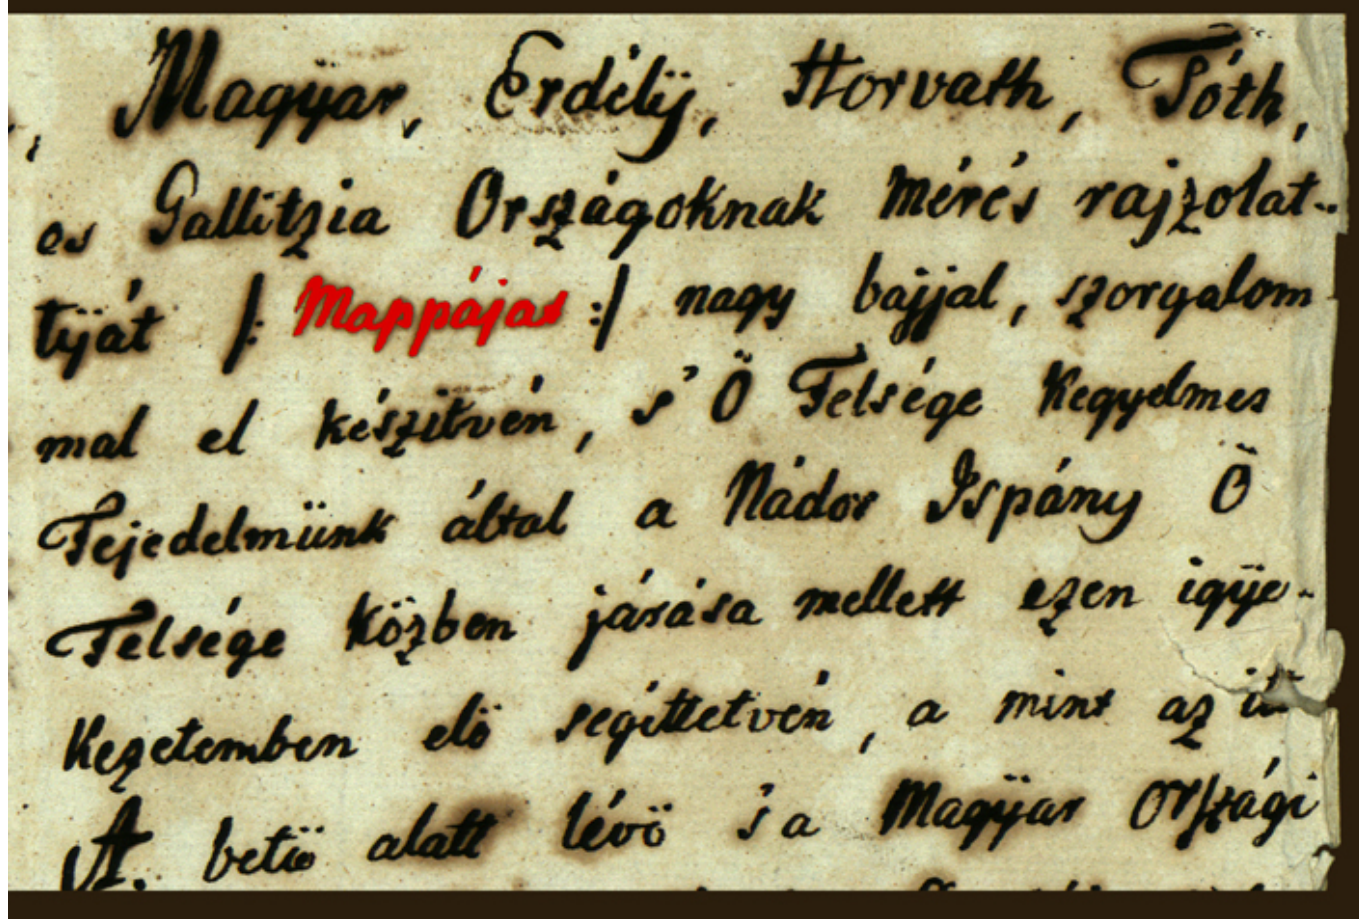 Magyar, Erdélÿ, Horvath, Tóth,
es Gallitzia Országoknak Mérés rajzolat-
tÿát /: Mappáját :/ nagy bajjal, szorgalom
mal el készitvén, s' Ö Felsége Kegyelmes
Fejedelmünk által a Nádor Ispány Ö
Felsége Közben járása mellett ezen igÿe-
Kezetemben elö segéttetvén, a mint az
A. betü alatt lévö s a Magÿar Országi